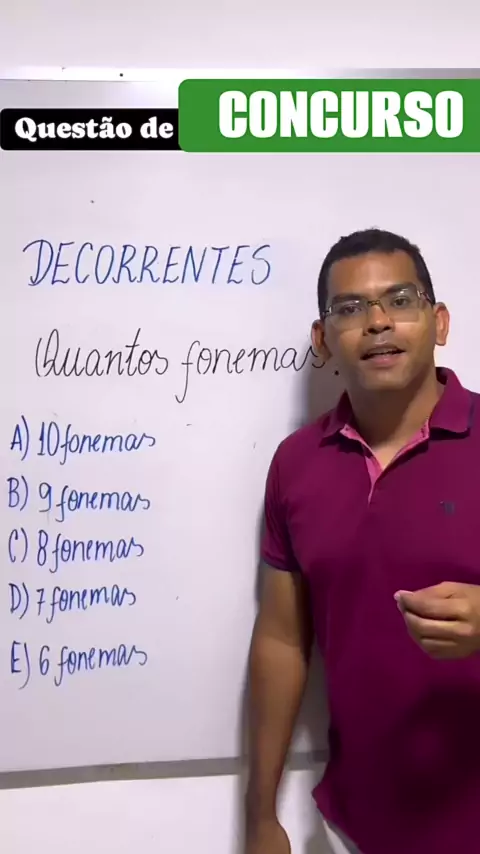 Questão de CONCURSO
DECORRENTES
Quantos fonemas
A) 10 fonemas
B) 9 fonemas
C) 8 fonemas
D) 7 fonemas
E) 6 fonemas